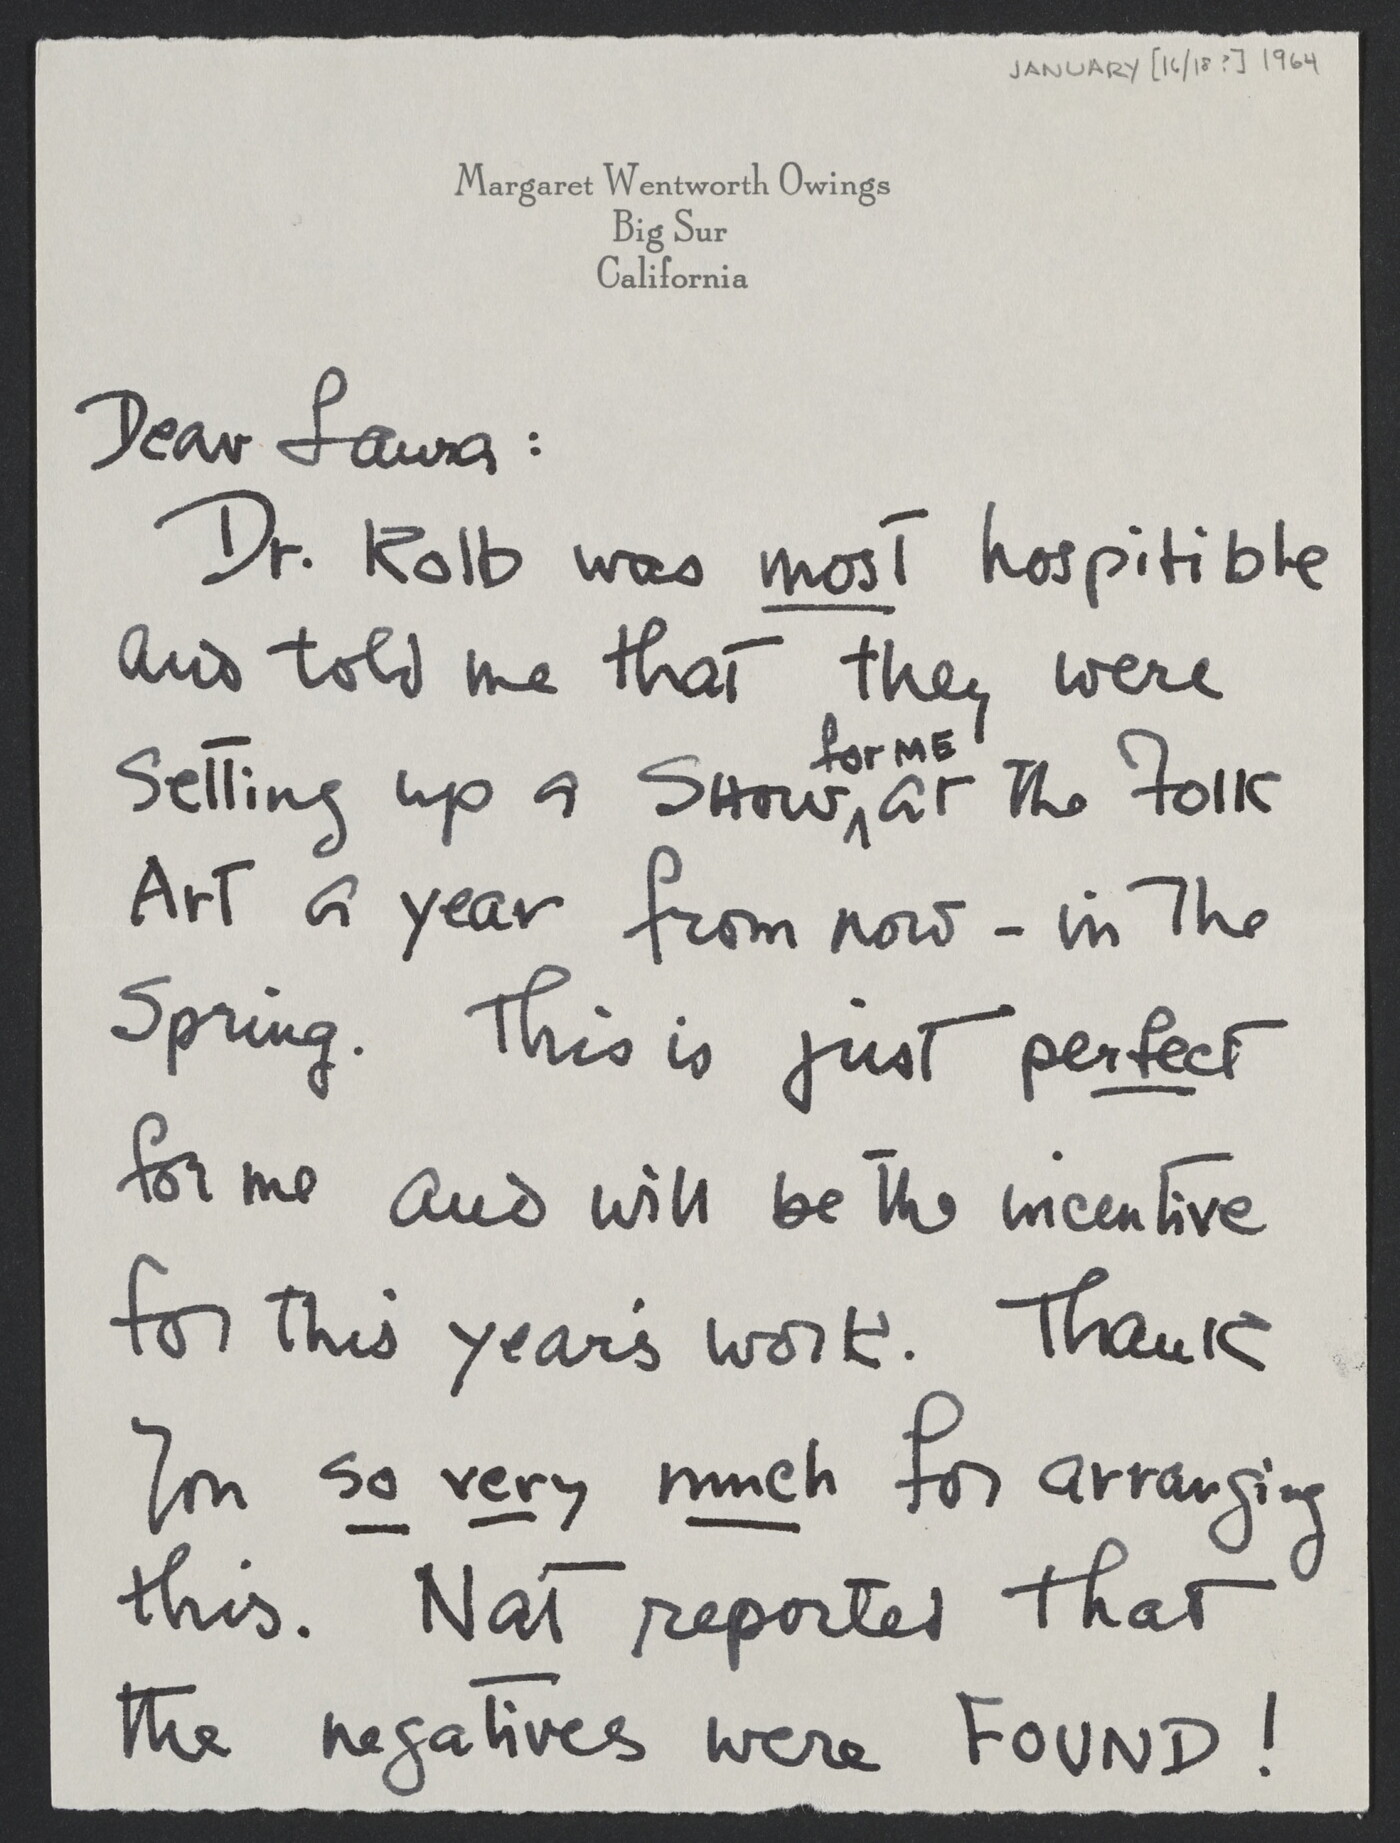 JANUARY [16/18?] 1964
Margaret Wentworth Owings
Big Sur
California
Dear Laura:
Dr. Kolb was most hospitible
and told me that they were
for ME
setting up a SHOW, at the Folk
Art a year from now - in the
Spring. This is just perfect
for me and will be the incentive
for this year's work. Thank
You so very much for arranging
this. Nat reported that
the negatives were FOUND!